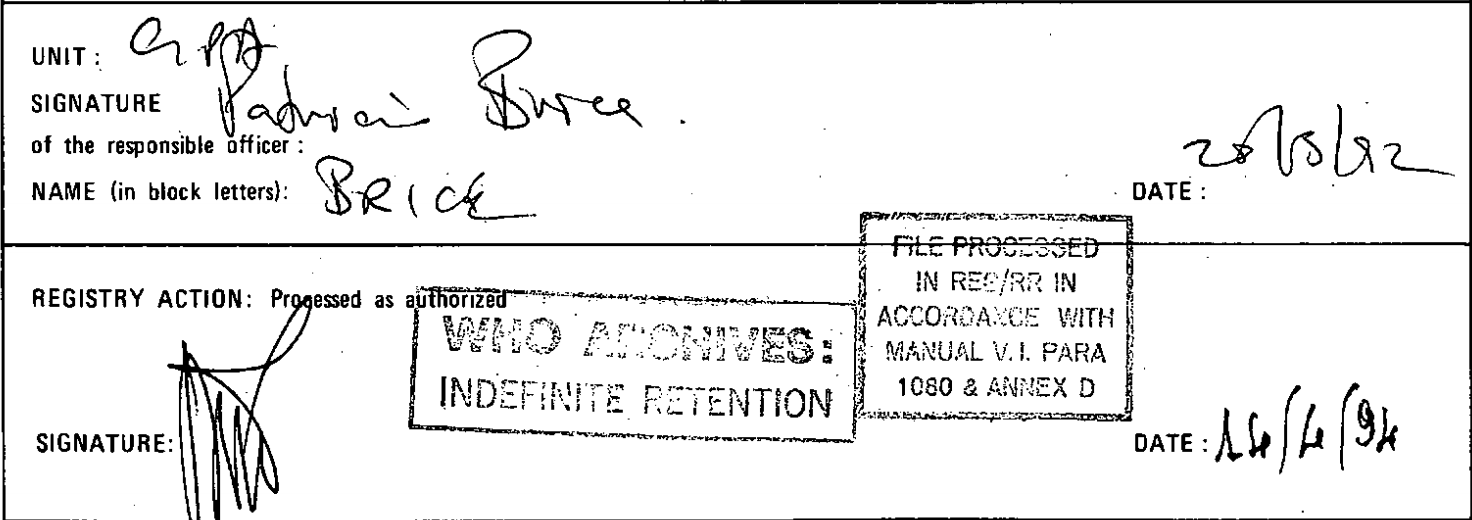 UNIT: GPA
SIGNATURE Patricia
of the responsible officer:
NAME (in block letters): BRICE
DATE:
REGISTRY ACTION: Processed as authorized
WHO ARCHIVES:
INDEFINITE RETENTION
FILE PROCESSED
IN REG/RR IN
ACCORDANCE WITH
MANUAL V.I. PARA
1080 & ANNEX D
SIGNATURE:
DATE: 14/4/94